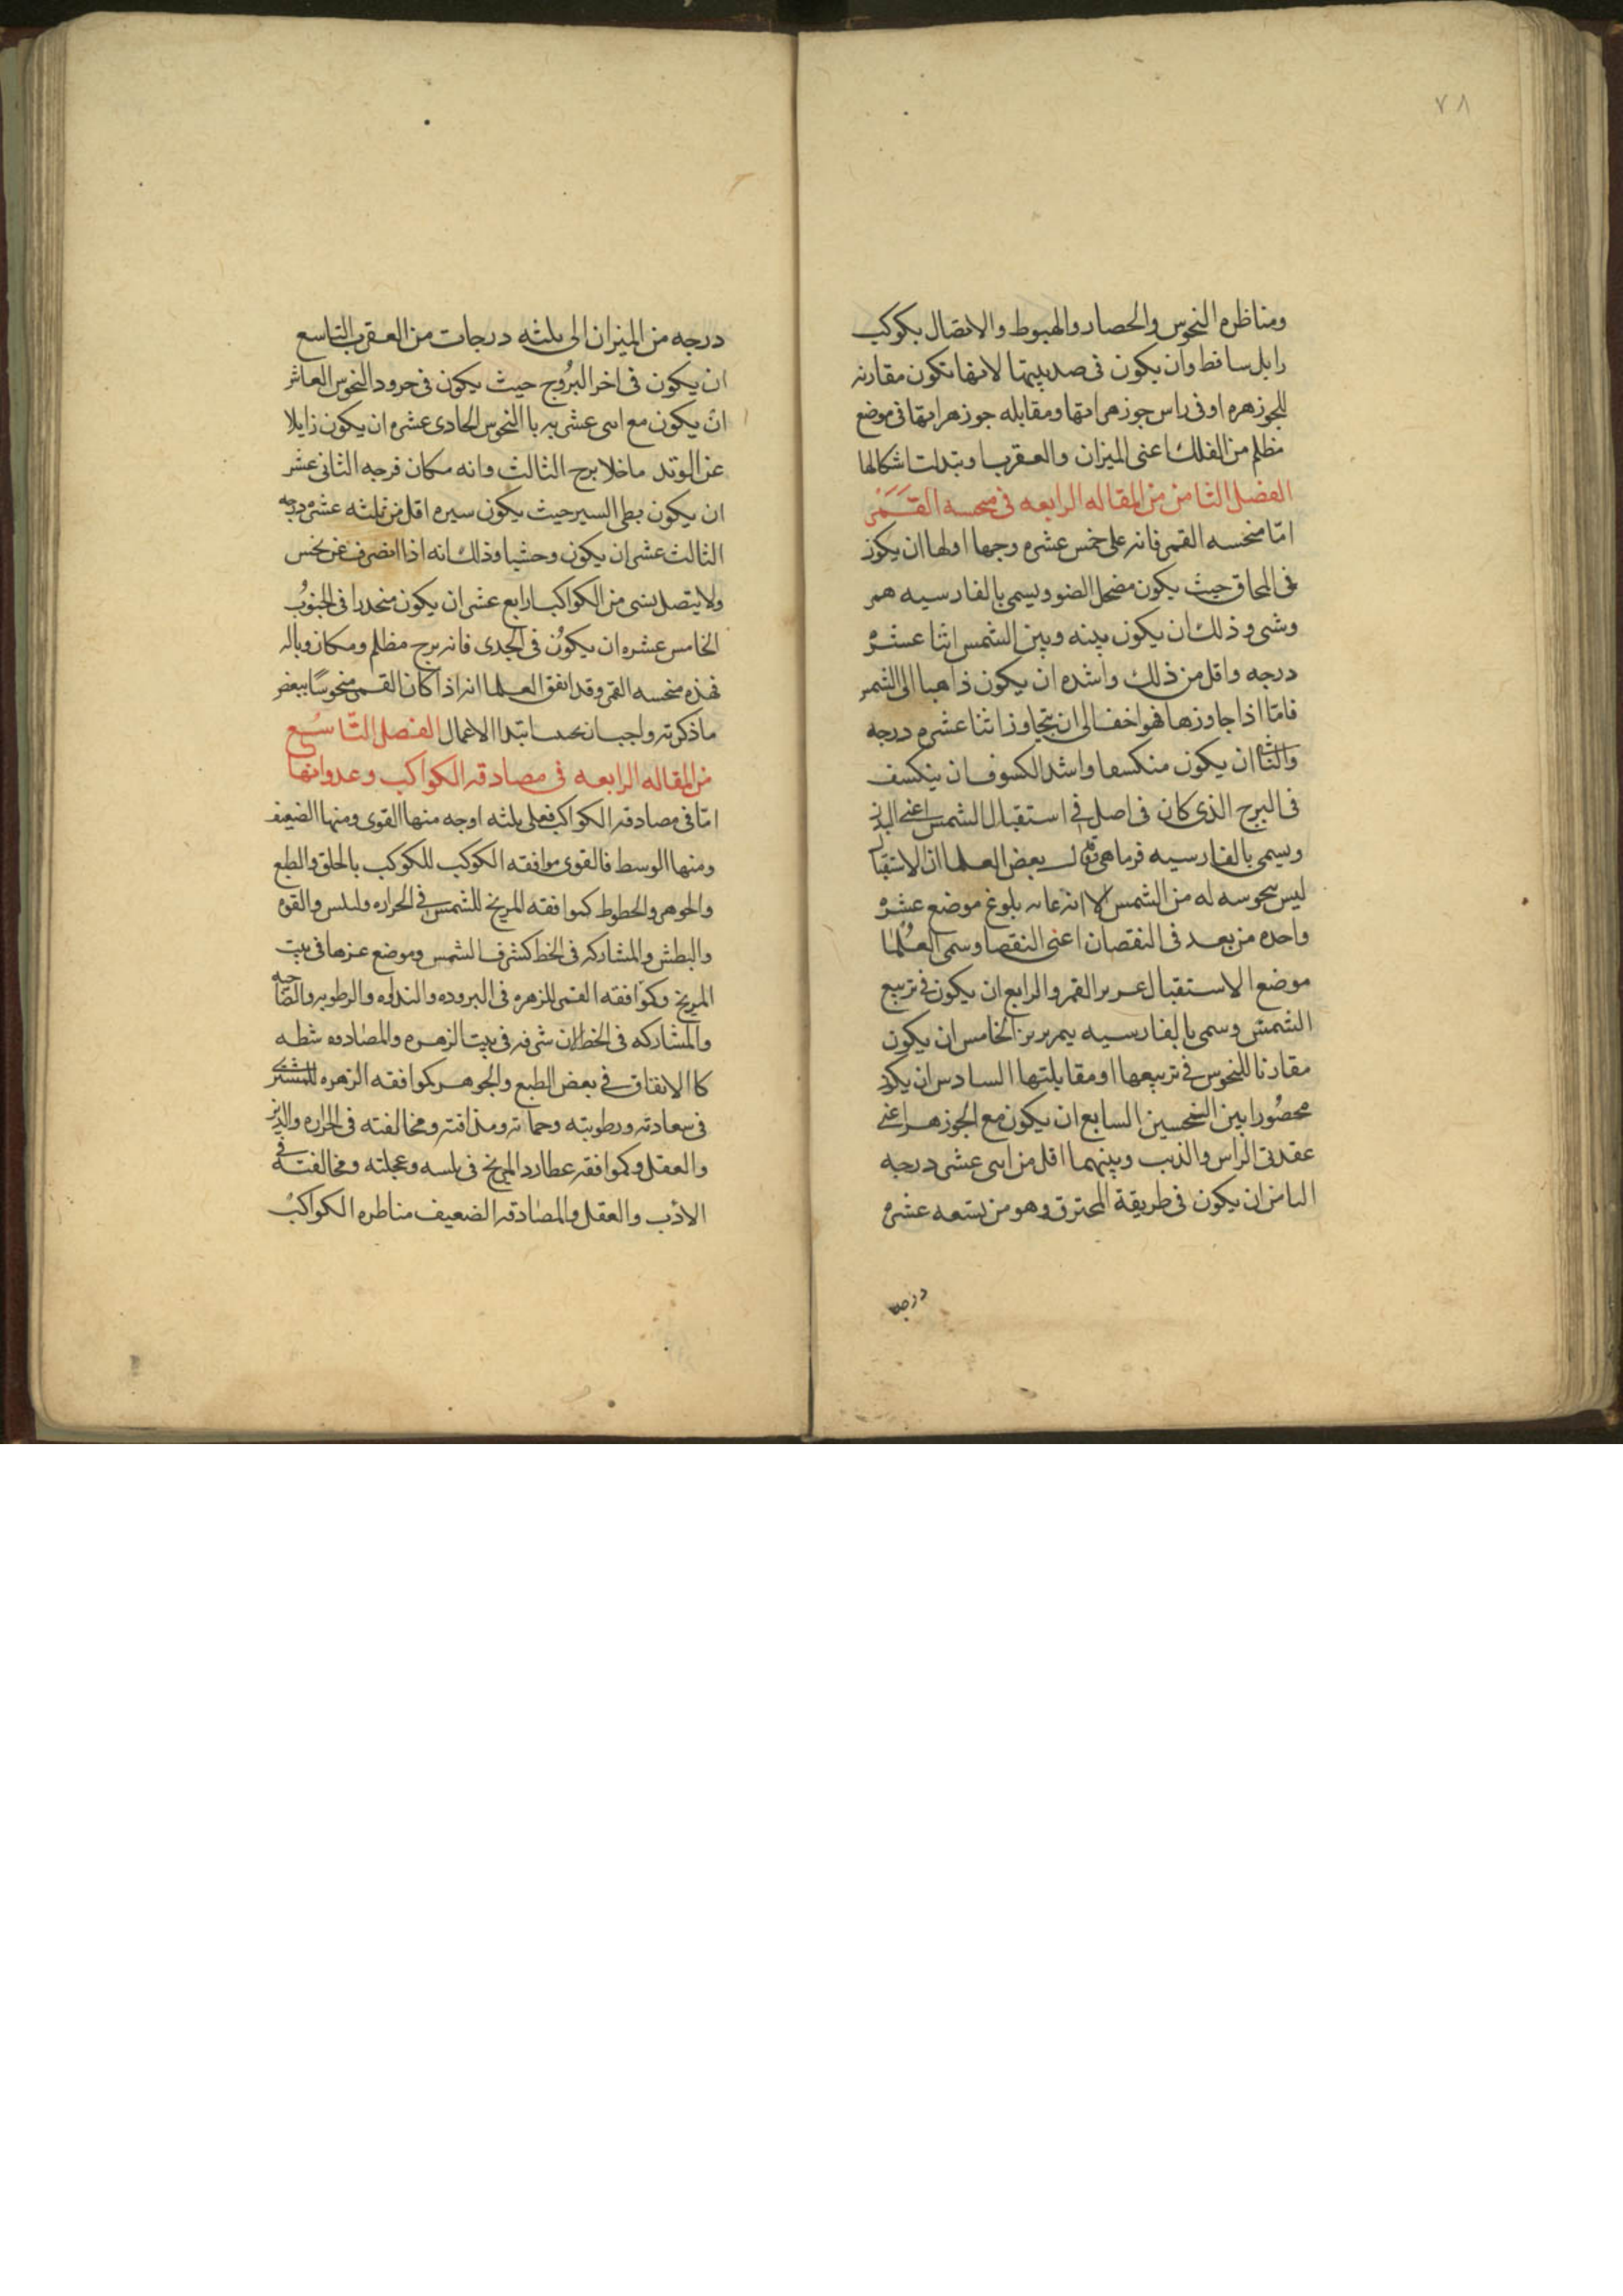 ٧٨
ومناظره النحوس والحصار والهبوط والاتصال بكوكب
زايل ساقط وان يكون فى ضد بيتها لانها تكون مقارنه
للجوزهره او فى راس جوزهراتها ومقابله جوزهراتها فى موضع
مظلم من الفلك اعنى الميزان والعقرب او بتدلت اشكالها
الفصل الثامن من المقاله الرابعه فى منحسه القمر
امّا منحسه القمر فانه على خمس عشره وجها اولها ان يكون
فى المحاق حيث يكون مضمحل الضوء ويسمى بالفارسيه همر
وشى وذلك ان يكون بينه وبين الشمس اثنا عشره
درجه واقل من ذلك واشده ان يكون ذاهبا الى الشمس
فامّا اذا جاوزها فهو اخف الى ان يتجاوز اثنا عشره درجه
والثانى ان يكون منكسفا واشد الكسوف ان ينكسف
فى البرج الذى كان فى اصل فى استقبال الشمس اعنى
ويسمى بالفارسيه فرماهى قال بعض العلما ان الاستقبال
ليس نحوسه له من الشمس الا انه غايه بلوغ موضع عشره
واحده من بعد فى النقصان اعنى النقصا وسمى العلما
موضع الاستقبال القمر والرابع ان يكون فى تربيع
الشمس وسمى بالفارسيه الخامس ان يكون
مقارنا للنحوس فى تربيعها او مقابلتها السادس ان يكون
محصورا بين النحسين السابع ان يكون مع الجوزهر اعنى
عقدتى الراس والذنب وبينهما اقل من اثنى عشر درجه
الثامن ان يكون فى طريقة المحترق وهو من تسعه عشره
درجه
درجه من الميزان الى ثلثه درجات من العقرب التاسع
ان يكون فى اخر البروج حيث يكون فى حدود النحوس العاشر
ان يكون مع اثنى عشريه با النحوس الحادى عشره ان يكون زايلا
عن الوتد ماخلا برج الثالث وانه مكان فرجه الثانى عشر
ان يكون بطى السير حيث يكون سيره اقل من ثلثه عشره درجه
الثالث عشر ان يكون وحشيا وذلك انه اذا انصرف عن نحس
ولا يتصل بشى من الكواكب ارابع عشر ان يكون منحدرا فى الجنوب
الخامس عشره ان يكون فى الجدى فانه برج مظلم ومكان وباله
فهذه منحسه القمر وقد اتفق العلما انه اذا كان القمر منحوسا ببعض
ماذكرته واجب ان ابتدا الاعمال الفصل التّاسع
من المقاله الرابعه فى مصادقه الكواكب وعدواتها
امّا فى مصادقه الكواكب فعلى ثلثه اوجه منها القوى ومنها الضعيف
ومنها الوسط فالقوى موافقه الكوكب للكوكب بالخلق والطبع
والجوهر والحظوظ كموافقه المريخ للشمس فى الحراره واليبس والقوه
والبطش والمشاركه فى الخط كشرف الشمس وموضع عزها فى بيت
المريخ وكموافقه القمر للزهره فى البروده والنداوه والرطوبه
والمشاركه فى الخط ان شرفه فى بيت الزهره والمصادقه
كا الاتفاق فى بعض الطبع والجوهر كموافقه الزهره للمشترى
فى سعادته ورطوبته ومخالفته فى الحراره والدين
والعقل وكموافقه عطارد المريخ فى يبسه وعجلته ومخالفته فى
الادب والعقل والمصادقه الضعيف مناظره الكواكب